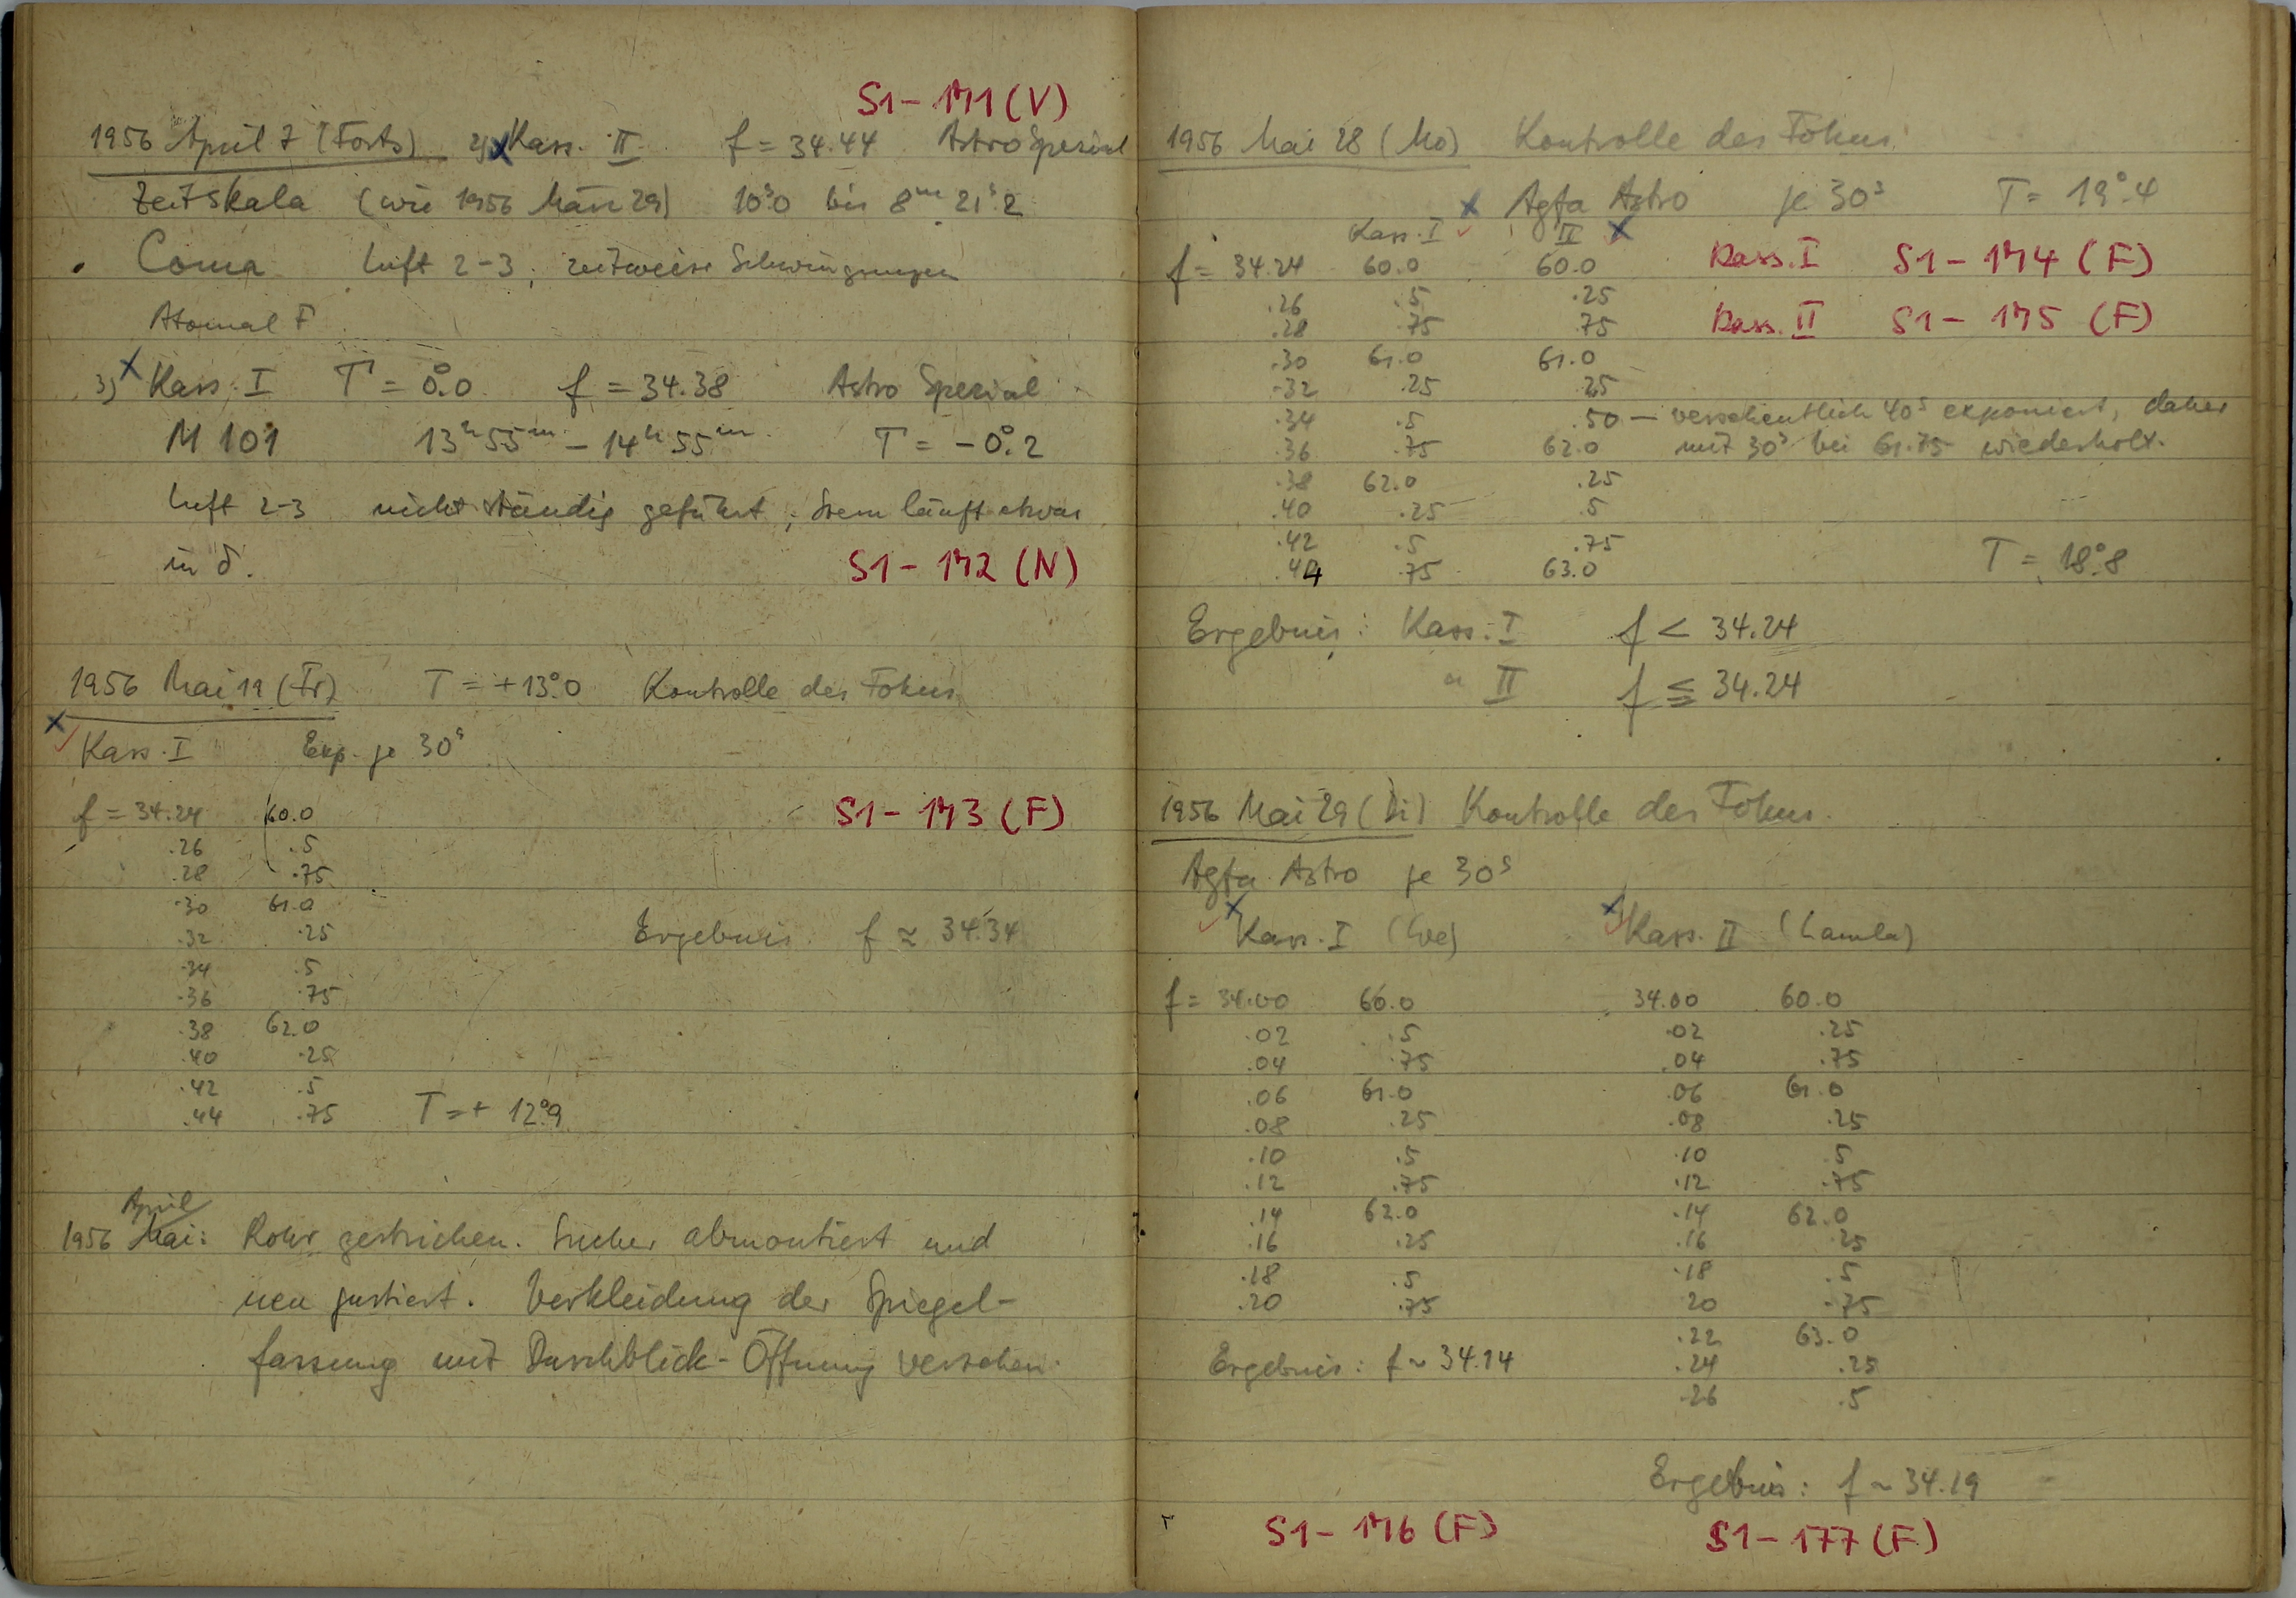 S1-171 (V)
1956 April 7 (Forts) 2) x Kass. II f = 34.44 Astro Spezial
Zeitskala (wie 1956 März 29) 10ˢ.0 bis 8ᵐ 21ˢ.2
Coma Luft 2-3, zeitweise Schwingungen
Atomal F
3) x Kass. I T = 0°.0 f = 34.38 Astro Spezial
M 101 13ʰ55ᵐ - 14ʰ55ᵐ T = -0°.2
Luft 2-3 nicht ständig geführt, Stern läuft etwas
in δ.
S1-172 (N)
1956 Mai 19 (Fr) T = +13°.0 Kontrolle des Fokus
x ✓ Kass. I Exp. je 30ˢ
S1-173 (F)
f = 34.24 60.0
.26 .5
.28 .75
.30 61.0
.32 .25
Ergebnis f ≈ 34.34
.34 .5
.36 .75
.38 62.0
.40 .25
.42 .5
.44 .75 T = + 12°.9
April
1956 Mai: Rohr gestrichen. Sucher abmontiert und
neu justiert. Verkleidung der Spiegel-
fassung mit Durchblick-Öffnung versehen.
1956 Mai 28 (Mo) Kontrolle des Fokus
x Agfa Astro je 30ˢ T = 19°.4
Kass. I ✓ II x
f = 34.24 60.0 60.0 Kass. I S1-174 (F)
.26 .5 .25
.28 .75 .75 Kass. II S1-175 (F)
.30 61.0 61.0
.32 .25 .25
.34 .5 .50 — versehentlich 40ˢ exponiert, daher
.36 .75 62.0 mit 30ˢ bei 61.75 wiederholt.
.38 62.0 .25
.40 .25 .5
.42 .5 .75
.44 .75 63.0 T = 18°.8
Ergebnis: Kass. I f < 34.24
" II f ≦ 34.24
1956 Mai 29 (Di) Kontrolle des Fokus.
Agfa Astro je 30ˢ
✓ x Kass. I (We) x ✓ Kass. II (Lamla)
f = 34.00 60.0 34.00 60.0
.02 .5 .02 .25
.04 .75 .04 .75
.06 61.0 .06 61.0
.08 .25 .08 .25
.10 .5 .10 .5
.12 .75 .12 .75
.14 62.0 .14 62.0
.16 .25 .16 .25
.18 .5 .18 .5
.20 .75 20 .75
.22 63.0
Ergebnis: f ~ 34.14 .24 .25
.26 .5
Ergebnis: f ~ 34.19
S1-176 (F) S1-177 (F)